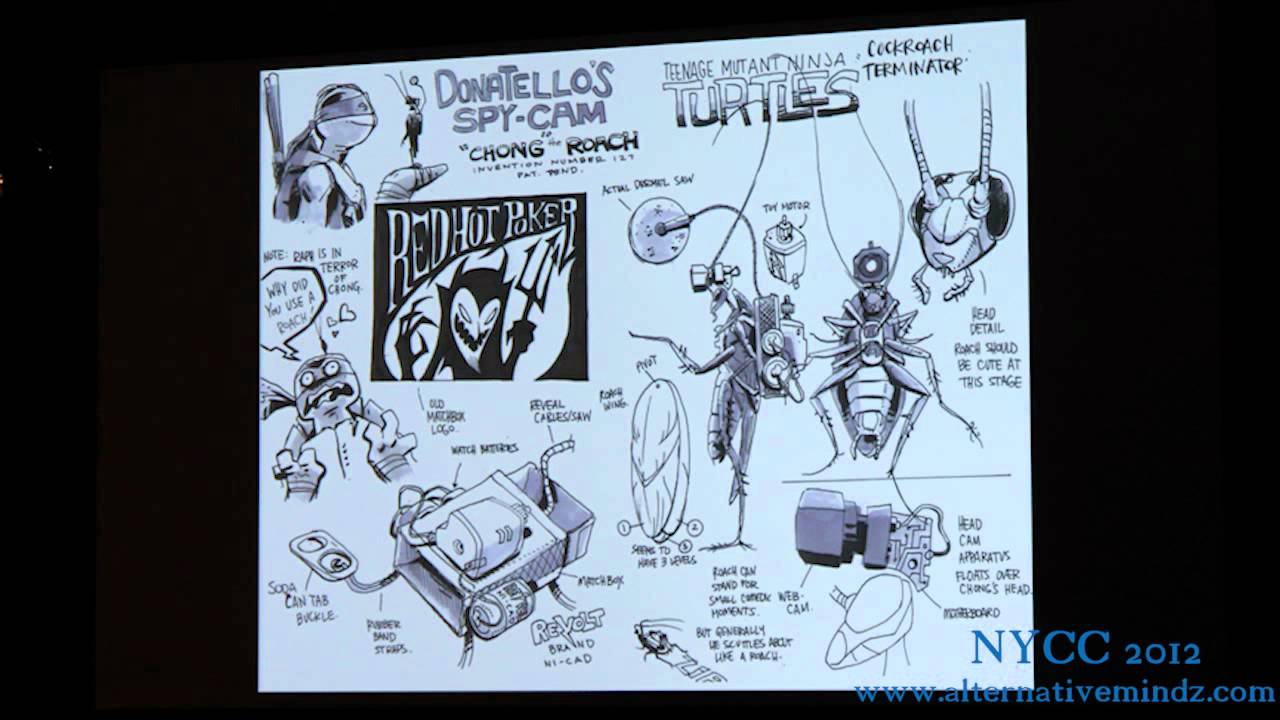 DONATELLO'S
SPY-CAM
"CHONG" the ROACH
INVENTION NUMBER 127
PAT. PEND.
TEENAGE MUTANT NINJA
TURTLES
"COCKROACH
TERMINATOR"
NOTE: RAPH IS IN
TERROR
OF
CHONG.
WHY DID
YOU USE A
ROACH!
RED HOT POKER
OLD
MATCHBOX
LOGO.
ACTUAL DREMEL SAW
TOY MOTOR
HEAD
DETAIL
ROACH SHOULD
BE CUTE AT
THIS STAGE
PIVOT
ROACH
WING.
1
2
3
SEEMS TO
HAVE 3 LEVELS
REVEAL
CABLES/SAW
WATCH BATTERIES
MATCHBOX
SODA
CAN TAB
BUCKLE.
RUBBER
BAND
STRAPS.
RE-VOLT
BRAND
NI-CAD
ROACH CAN
STAND FOR
SMALL COMEDIC
MOMENTS.
BUT GENERALLY
HE SCUTTLES ABOUT
LIKE A ROACH.
WEB-
CAM.
HEAD
CAM
APPARATUS
FLOATS OVER
CHONG'S HEAD.
MOTHERBOARD
NYCC 2012
www.alternativemindz.com